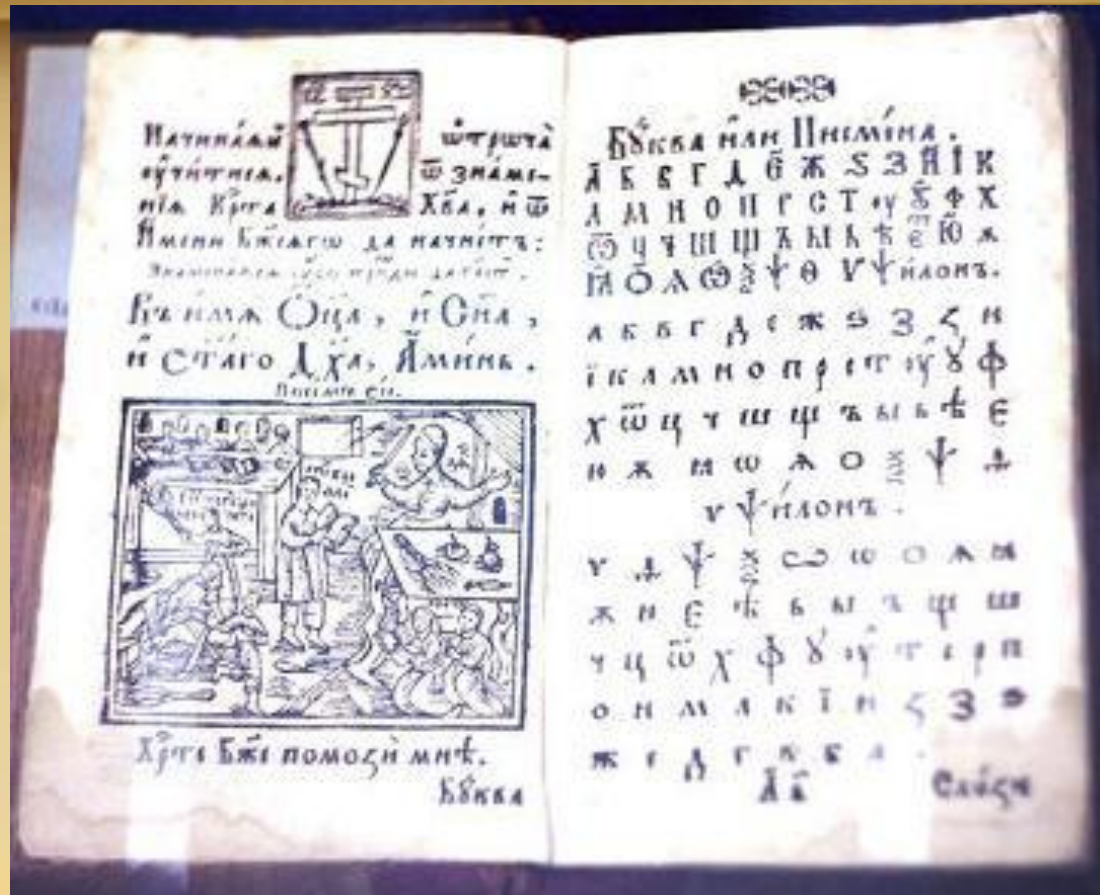 Начина́ѧй ѿтроча̀
ᲂу҆чи́тисѧ. ѿ зна́ме-
нїѧ Кр҇та Хв҃а, и҆ ѿ
И҆мени Бж҃їѧгѡ да начне́тъ:
Въ и҆мѧ Ѻц҃а, и҆ Сн҃а,
и҆ ст҃а́гѡ Дх҃а, А҆ми́нь.
Хр҇те Бж҃е помоѕѝ мнѣ.
Бꙋ́ква
Бꙋ́ква и҆лѝ Писмена̀.
А Б В Г Д Є Ж Ѕ З И І К
Л М Н О П Р С Т ᲂу Ꙋ Ф Х
Ѿ Ц Ч Ш Щ Ъ Ы Ь Ѣ Є Ю Ѧ
Ꙗ Ѻ Ѧ Ѡ Ѯ Ѱ Ѳ Ѵ Ѵѱи́лонъ.
а б в г д е ж ѕ з ꙁ и
ї к л м н о п р с т ᲂу ꙋ ф
х ѿ ц ч ш щ ъ ы ь ѣ є
ю ѫ ꙗ ѡ ѧ о ѯ ѱ ѳ
ѵ ѱи́лонъ.
ѵ ѳ ѱ ѯ ѡ ѡ о ѧ ꙗ
ѫ ю є ѣ ь ы ъ щ ш
ч ц ѿ х ф ꙋ ᲂу т с р п
о н м л к ї и ꙁ з ѕ
ж е д г в б а .
А в Сло́ѕи